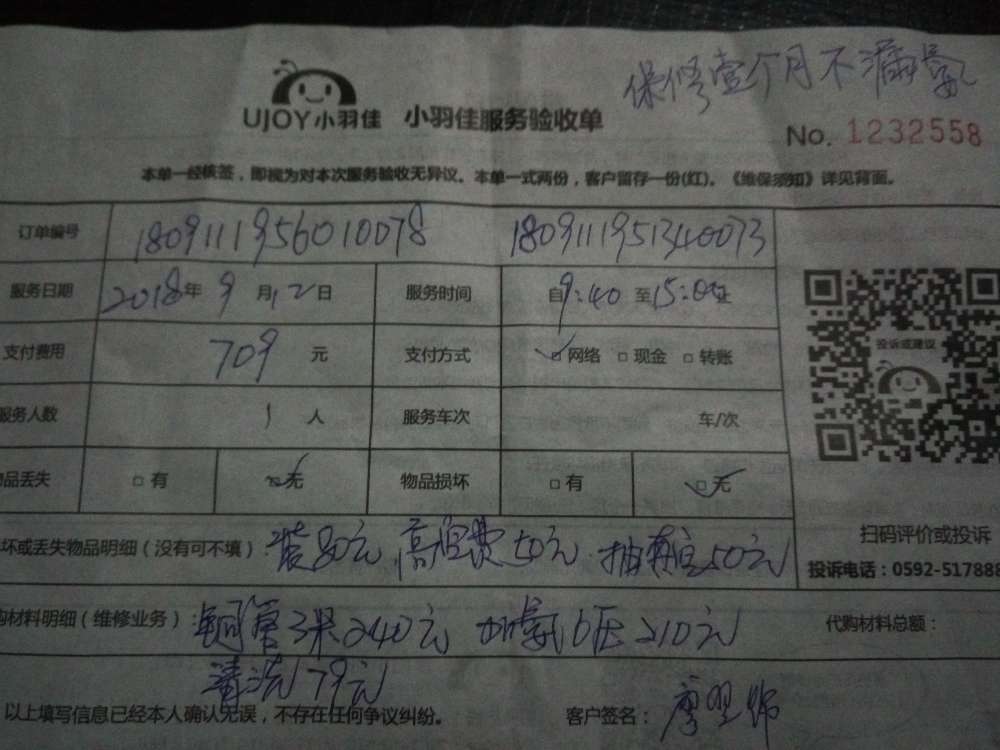 保修壹个月不漏氟
UJOY小羽佳 小羽佳服务验收单
No. 1232558
本单一经核签，即视为对本次服务验收无异议。本单一式两份，客户留存一份(红)。《维保须知》详见背面。
订单编号 1809111956010078 1809111951340073
服务日期 2018年9月12日 服务时间 自9:40 至15:00止
投诉或建议
支付费用 709 元 支付方式 网络 现金 转账
服务人数 1 人 服务车次 车/次
品丢失 有 无 物品损坏 有 无
扫码评价或投诉
坏或丢失物品明细（没有可不填）：装80元 高空费50元 抽真空50元
投诉电话：0592-517888
购材料明细（维修业务）：铜管3米240元 加氟6压210元 代购材料总额：
清洗179元
以上填写信息已经本人确认无误，不存在任何争议纠纷。 客户签名：